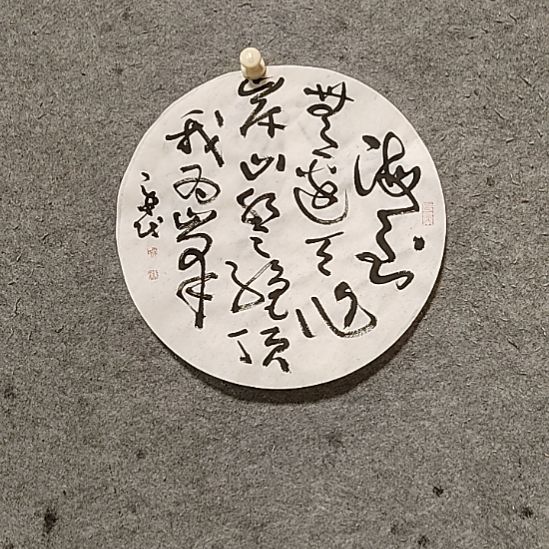 海到
無邊天作
岸山登絕頂
我為峯